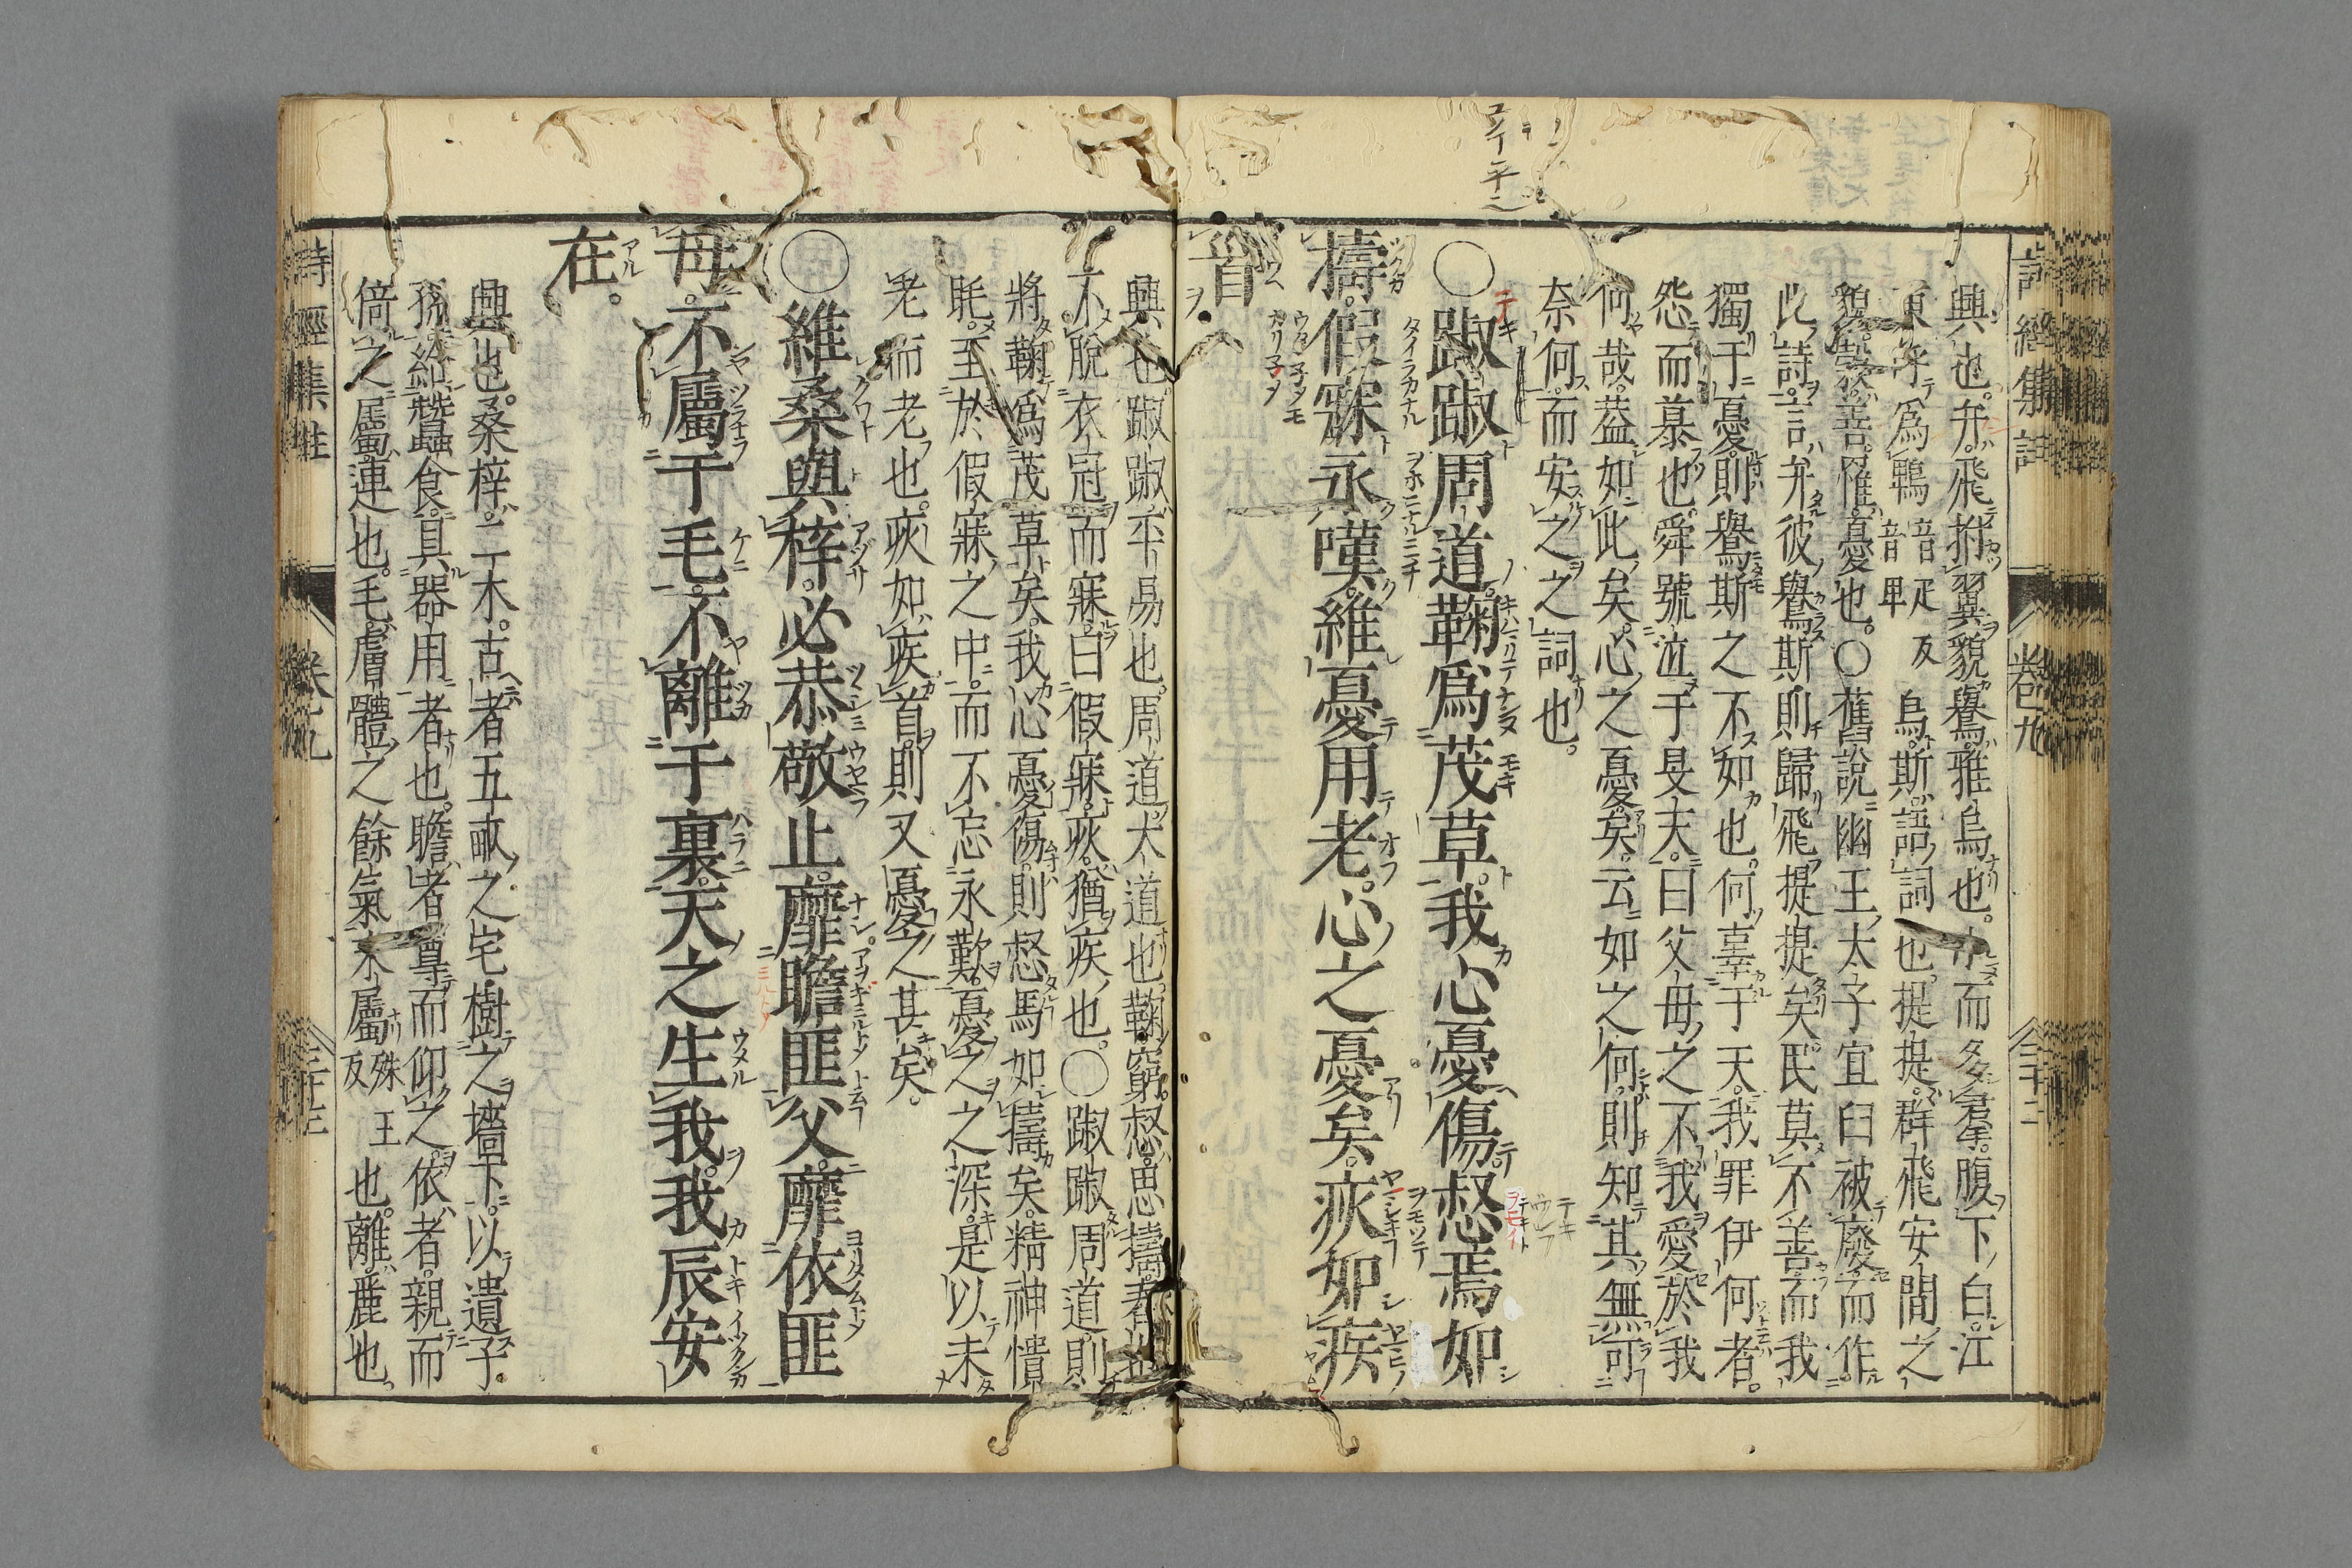 興也。弁。飛拊翼貌。鸒。雅烏也。小而多羣。腹下白。江
東呼爲鵯音匹音卑反烏。斯。語詞也。提提。群飛安閒之
貌。穀。善。罹。憂也。○舊說幽王太子宜臼被廢而作
此詩。言弁彼鸒斯。則歸飛提提矣。民莫不善。而我
獨于憂。則鸒斯之不如也。何辜于天。我罪伊何者。
怨而慕也。舜號泣于旻天。曰父母之不我愛。於我
何哉。蓋如此矣。心之憂矣。云如之何。則知其無可
奈何。而安之之詞也。
○踧踧周道。鞠爲茂草。我心憂傷。惄焉如
擣。假寐永嘆。維憂用老。心之憂矣。疢如疾
首。
興也。踧踧。平易也。周道。大道也。鞠。窮。惄。思。擣。舂也。
不脫衣冠而寐。曰假寐。疢。猶疾也。○踧踧周道。則
將鞠爲茂草矣。我心憂傷。則惄焉如擣矣。精神憒
眊。至於假寐之中。而不忘永歎。憂之之深。是以未
老而老也。疢如疾首。則又憂之甚矣。
○維桑與梓。必恭敬止。靡瞻匪父。靡依匪
母。不屬于毛。不離于裏。天之生我。我辰安
在。
興也。桑梓。二木。古者五畝之宅。樹之墻下。以遺子
孫。給蠶食。具器用者也。瞻者。尊而仰之。依者。親而
倚之。屬。連也。毛。膚體之餘氣末屬也。離。麗也。
詩經集註
卷九
三十二
詩經集註
卷九
三十三